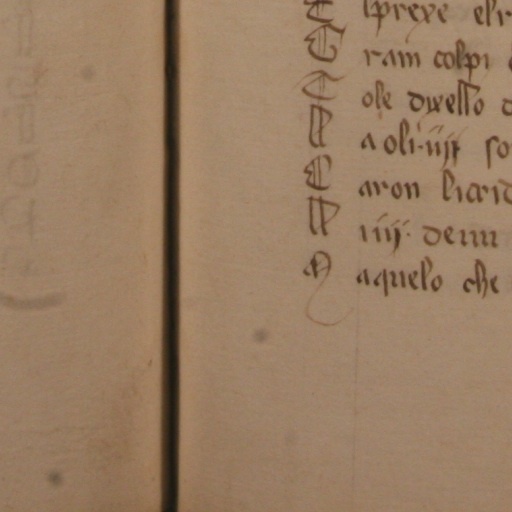 E lprexe elr
G ram colpi
C ole duello d
M a oli·iiij so
C aron licrid
M iiij· de iiii
M aquelo che